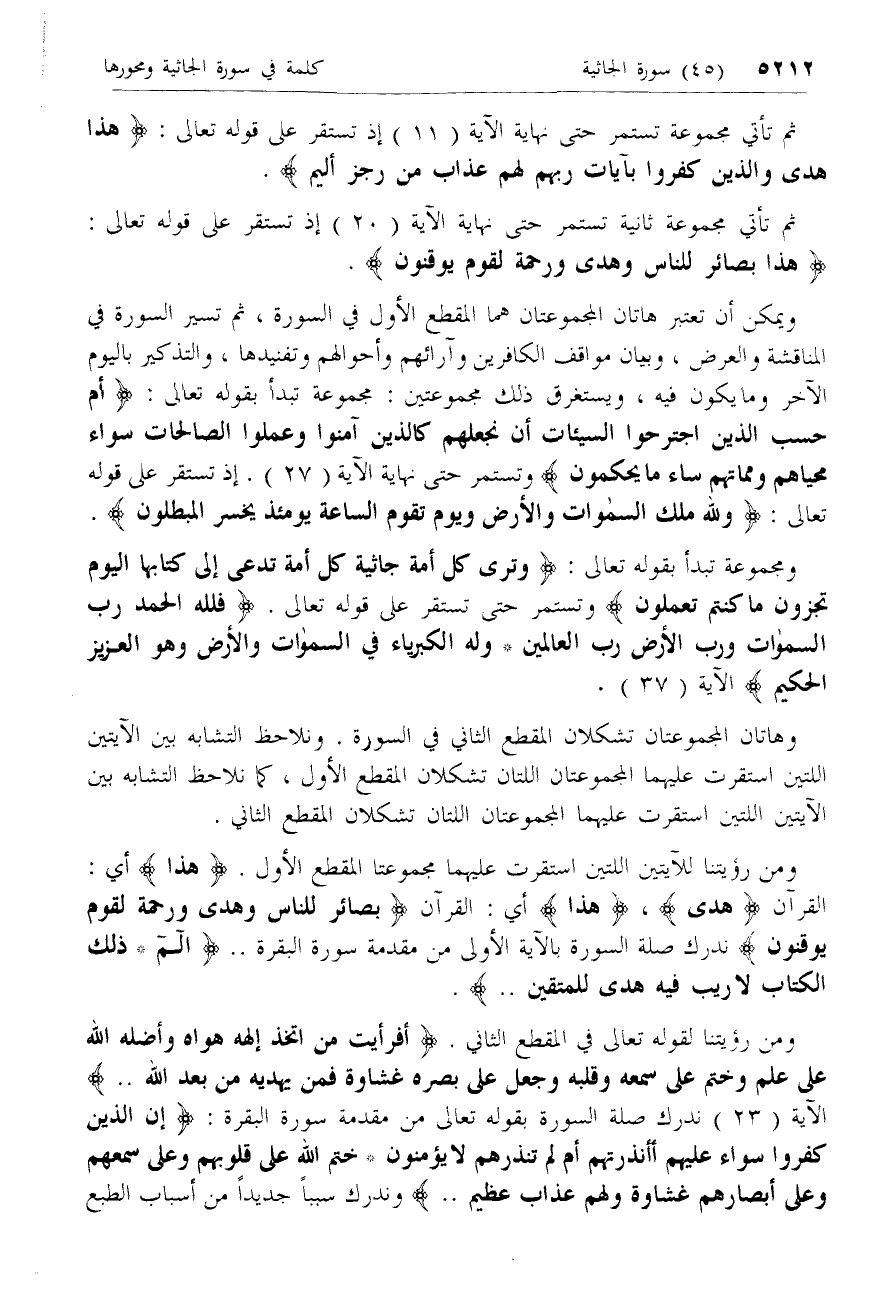 ٥٢١٢ (٤٥) سورة الجاثية كلمة في سورة الجاثية ومحورها
ثم تأتي مجموعة تستمر حتى نهاية الآية ( ١١ ) إذ تستقر على قوله تعالى : ﴿ هذا
هدى والذين كفروا بآيات ربهم لهم عذاب من رجز أليم ﴾ .
ثم تأتي مجموعة ثانية تستمر حتى نهاية الآية ( ٢٠ ) إذ تستقر على قوله تعالى :
﴿ هذا بصائر للناس وهدى ورحمة لقوم يوقنون ﴾ .
ويمكن أن تعتبر هاتان المجموعتان هما المقطع الأول في السورة ، ثم تسير السورة في
المناقشة والعرض ، وبيان مواقف الكافرين وآرائهم وأحوالهم وتفنيدها ، والتذكير باليوم
الآخر ومايكون فيه ، ويستغرق ذلك مجموعتين : مجموعة تبدأ بقوله تعالى : ﴿ أم
حسب الذين اجترحوا السيئات أن نجعلهم كالذين آمنوا وعملوا الصالحات سواء
محياهم ومماتهم ساء مايحكمون ﴾ وتستمر حتى نهاية الآية ( ٢٧ ) . إذ تستقر على قوله
تعالى : ﴿ ولله ملك السمٰوات والأرض ويوم تقوم الساعة يومئذ يخسر المبطلون ﴾ .
ومجموعة تبدأ بقوله تعالى : ﴿ وترى كل أمة جاثية كل أمة تدعى إلى كتابها اليوم
تجزون ماكنتم تعملون ﴾ وتستمر حتى تستقر على قوله تعالى . ﴿ فلله الحمد رب
السمٰوات ورب الأرض رب العالمين * وله الكبرياء في السمٰوات والأرض وهو العزيز
الحكيم ﴾ الآية ( ٣٧ ) .
وهاتان المجموعتان تشكلان المقطع الثاني في السورة . ونلاحظ التشابه بين الآيتين
اللتين استقرت عليهما المجموعتان اللتان تشكلان المقطع الأول ، كما نلاحظ التشابه بين
الآيتين اللتين استقرت عليهما المجموعتان اللتان تشكلان المقطع الثاني .
ومن رؤيتنا للآيتين اللتين استقرت عليهما مجموعتا المقطع الأول . ﴿ هذا ﴾ أي :
القرآن ﴿ هدى ﴾ ، ﴿ هذا ﴾ أي : القرآن ﴿ بصائر للناس وهدى ورحمة لقوم
يوقنون ﴾ ندرك صلة السورة بالآية الأولى من مقدمة سورة البقرة .. ﴿ الٓـمٓ * ذلك
الكتاب لاريب فيه هدى للمتقين .. ﴾ .
ومن رؤيتنا لقوله تعالى في المقطع الثاني . ﴿ أفرأيت من اتخذ إلهه هواه وأضله الله
على علم وختم على سمعه وقلبه وجعل على بصره غشاوة فمن يهديه من بعد الله .. ﴾
الآية ( ٢٣ ) ندرك صلة السورة بقوله تعالى من مقدمة سورة البقرة : ﴿ إن الذين
كفروا سواء عليهم أأنذرتهم أم لم تنذرهم لايؤمنون * ختم الله على قلوبهم وعلى سمعهم
وعلى أبصارهم غشاوة ولهم عذاب عظيم .. ﴾ وندرك سبباً جديداً من أسباب الطبع